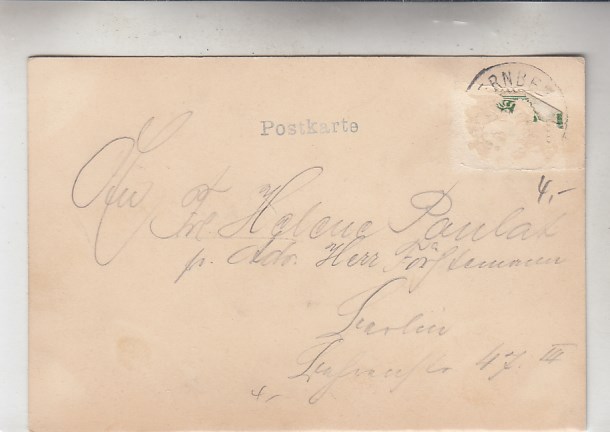 RNBE
Postkarte
4,-
An
Frl. Helene Paulat
p. Adr. Herr Förstemann
Berlin
47. III